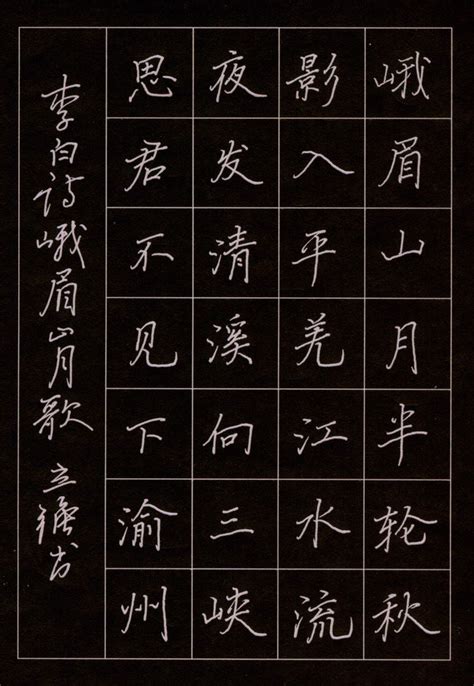 峨眉山月半轮秋
影入平羌江水流
夜发清溪向三峡
思君不见下渝州
李白诗峨眉山月歌 立强书